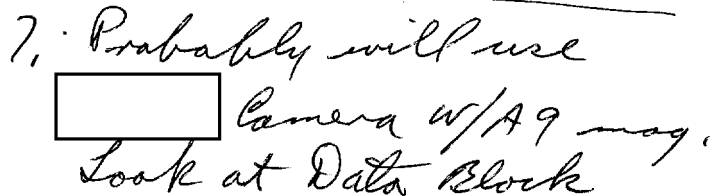 7. Probably will use
Camera W/A9 mag.
Look at Data Block